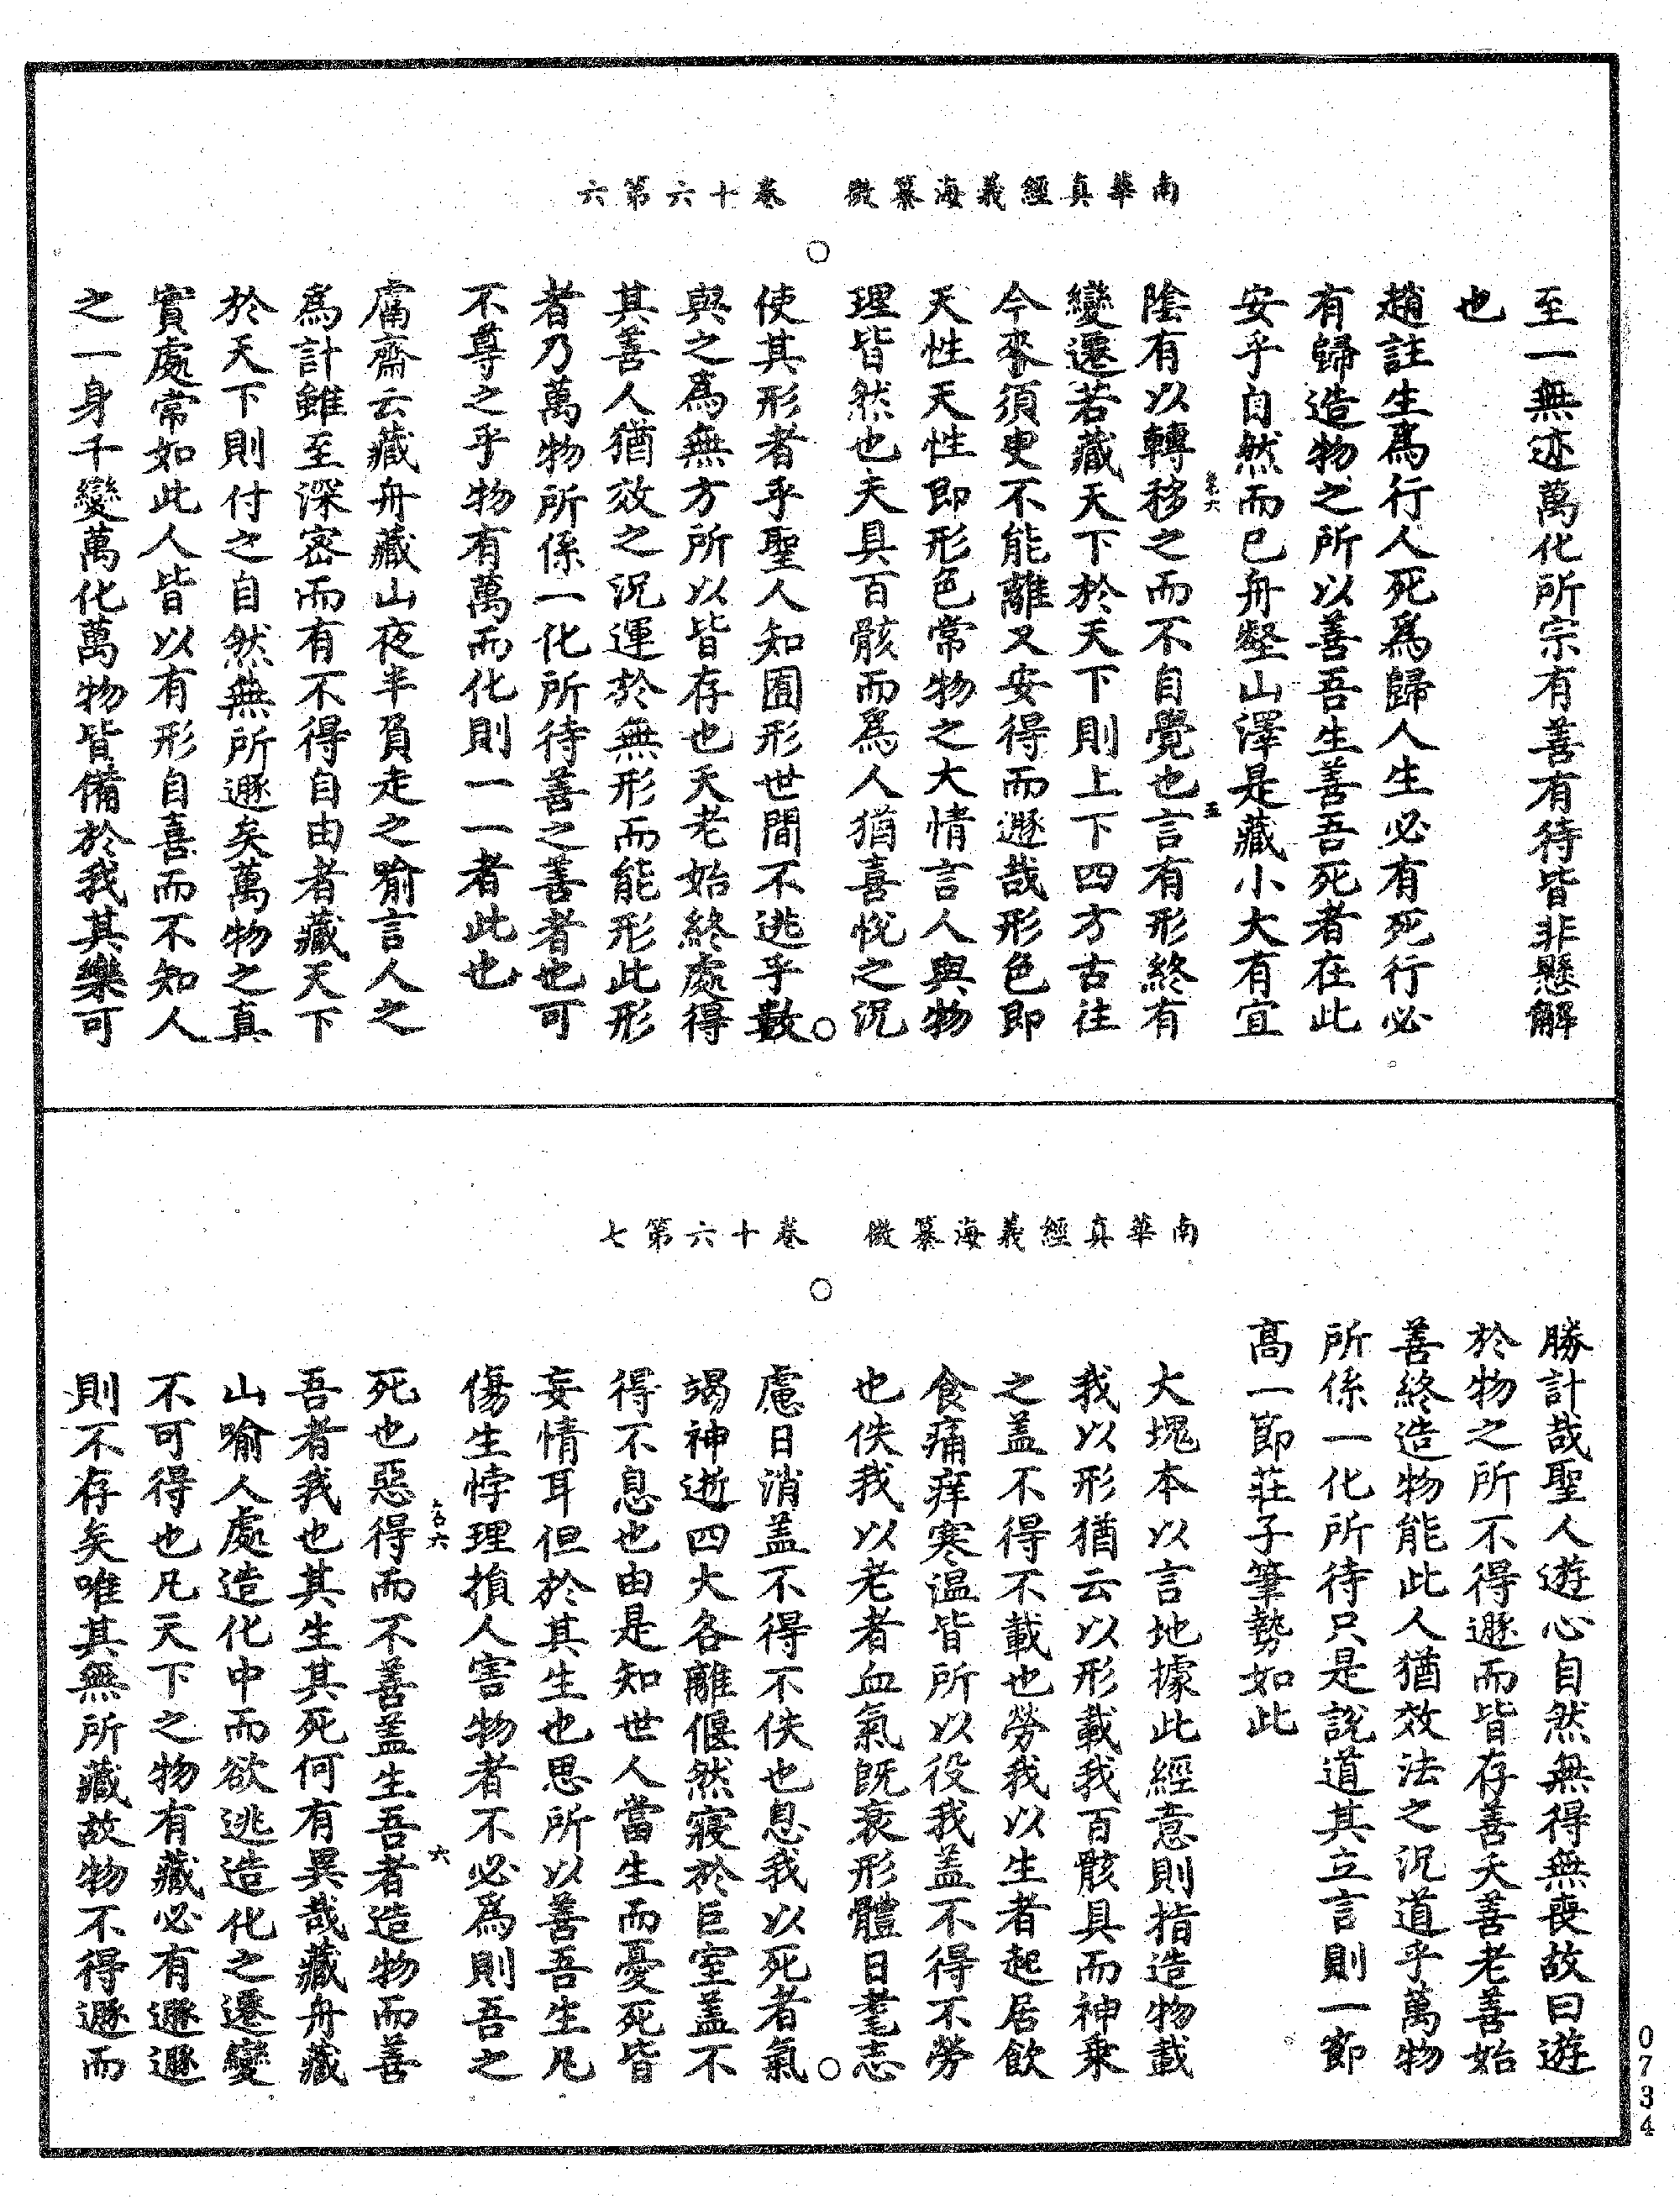 南華真經義海纂微　卷十六第六
至一無迹萬化所宗有善有待皆非懸解
也
趙註生為行人死為歸人生必有死行必
有歸造物之所以善吾生善吾死者在此
安乎自然而已舟壑山澤是藏小大有宜
陰有以轉移之而不自覺也言有形終有
變遷若藏天下於天下則上下四方古往
今來須更不能離又安得而遯哉形色即
天性天性即形色常物之大情言人與物
理皆然也夫具百骸而為人猶喜悅之況
使其形者乎聖人知囿形世間不逃乎數
與之為無方所以皆存也夭老始終處得
其善人猶效之況運於無形而能形此形
者乃萬物所係一化所待善之善者也可
不尊之乎物有萬而化則一一者此也
鬳齋云藏舟藏山夜半負走之喻言人之
為計雖至深密而有不得自由者藏天下
於天下則付之自然無所遯矣萬物之真
實處常如此人皆以有形自喜而不知人
之一身千變萬化萬物皆備於我其樂可
南華真經義海纂微　卷十六第七
勝計哉聖人遊心自然無得無喪故曰遊
於物之所不得遯而皆存善夭善老善始
善終造物能此人猶效法之況道乎萬物
所係一化所待只是說道其立言則一節
高一節莊子筆勢如此
大塊本以言地據此經意則指造物載
我以形猶云以形載我百骸具而神乗
之盖不得不載也勞我以生者起居飲
食痛痒寒温皆所以役我盖不得不勞
也佚我以老者血氣既衰形體日耄志
慮日消盖不得不佚也息我以死者氣
竭神逝四大各離偃然寢於巨室盖不
得不息也由是知世人當生而憂死皆
妄情耳但於其生也思所以善吾生凡
傷生悖理損人害物者不必為則吾之
死也惡得而不善盖生吾者造物而善
吾者我也其生其死何有異哉藏舟藏
山喻人處造化中而欲逃造化之遷變
不可得也凡天下之物有藏必有遯遯
則不存矣唯其無所藏故物不得遯而
0734